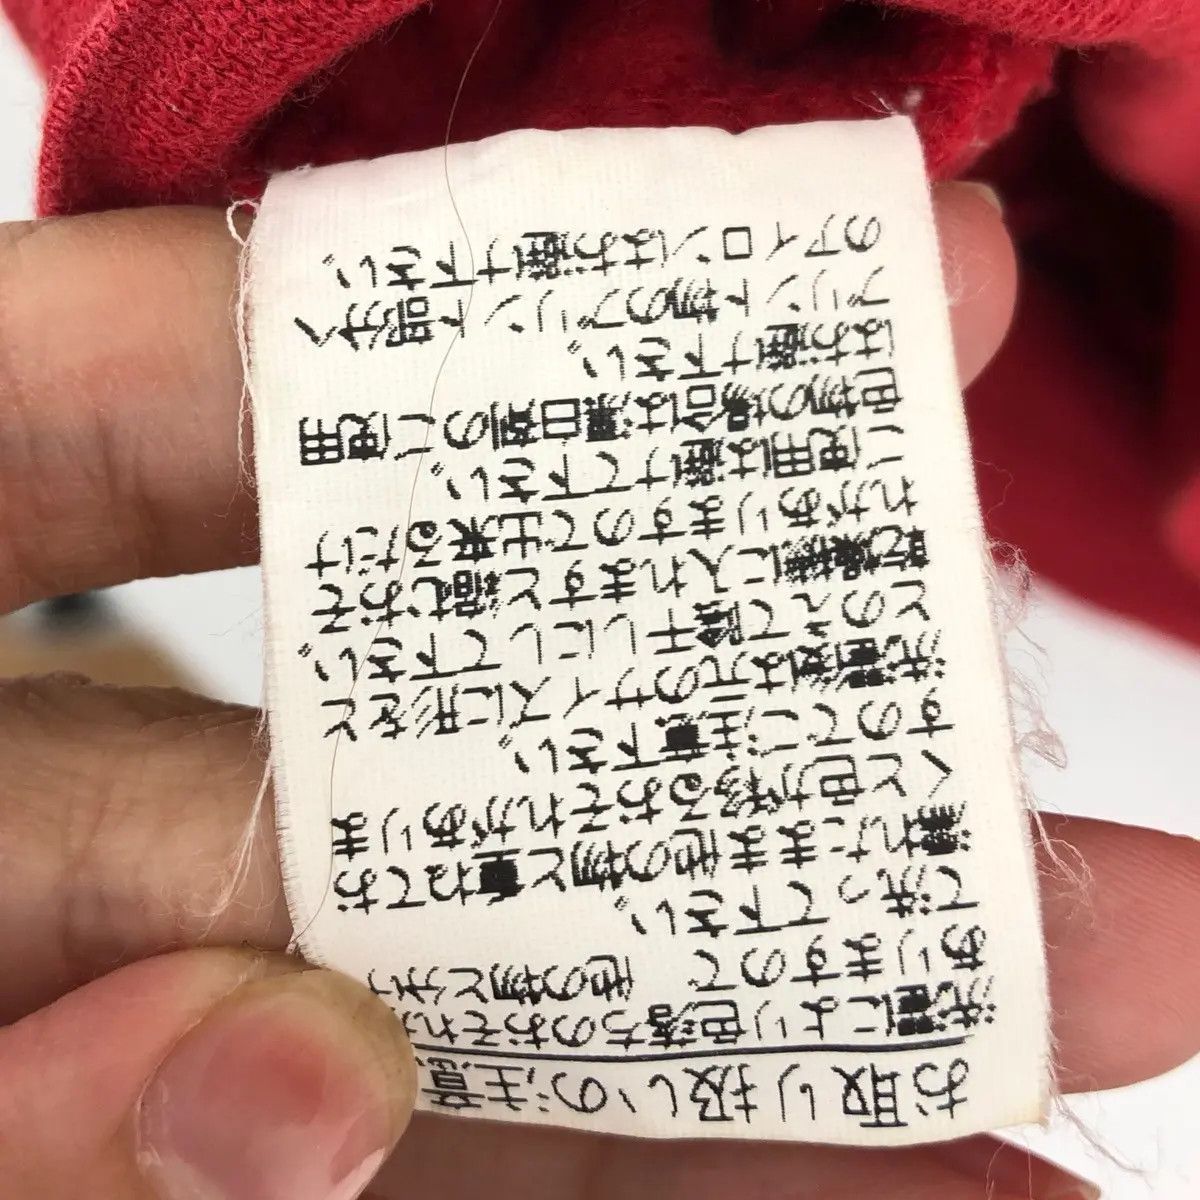 お取り扱いの注意
洗濯により色落ちのおそれが
ありますので 他の物と分け
て洗って下さい。
濡れたまま他の物と重ねてお
くと色が移るおそれがありま
すのでご注意下さい。
洗濯後は元のサイズに形をと
とのえて陰干しにして下さい。
乾燥機に入れますと縮むおそ
れがありますので出来るだけ
ご使用は避けて下さい。
色物の場合は漂白剤のご使用
はお避け下さい。
プリント物のプリント部分へ
のアイロンはお避け下さい。